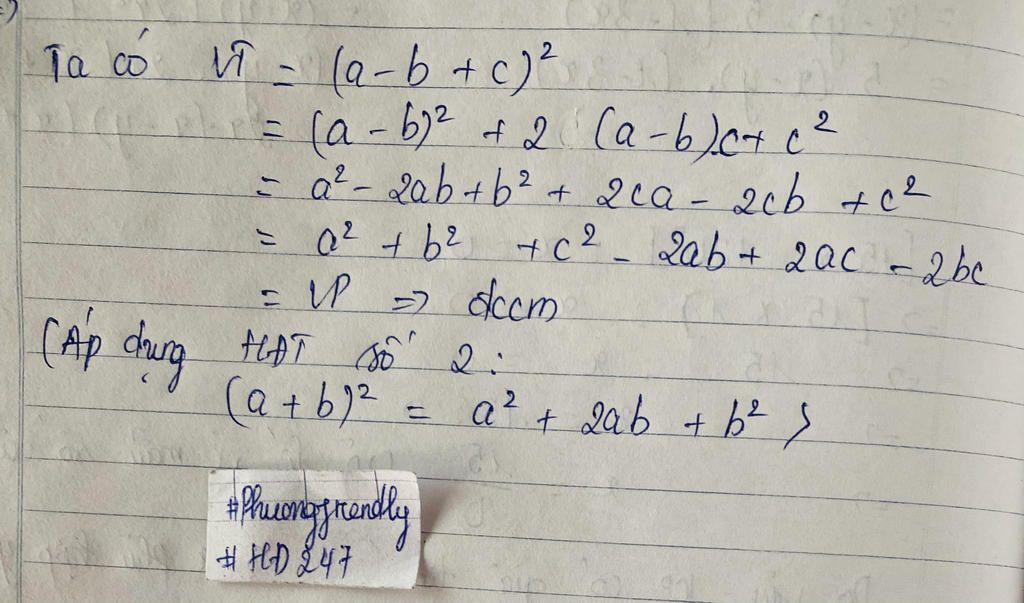 Ta có VT = (a - b + c)²
= (a - b)² + 2 (a - b).c + c²
= a² - 2ab + b² + 2ca - 2cb + c²
= a² + b² + c² - 2ab + 2ac - 2bc
= VP => đccm
(Áp dụng HĐT số 2:
(a + b)² = a² + 2ab + b² )
#Phuongfrendly
# HD247